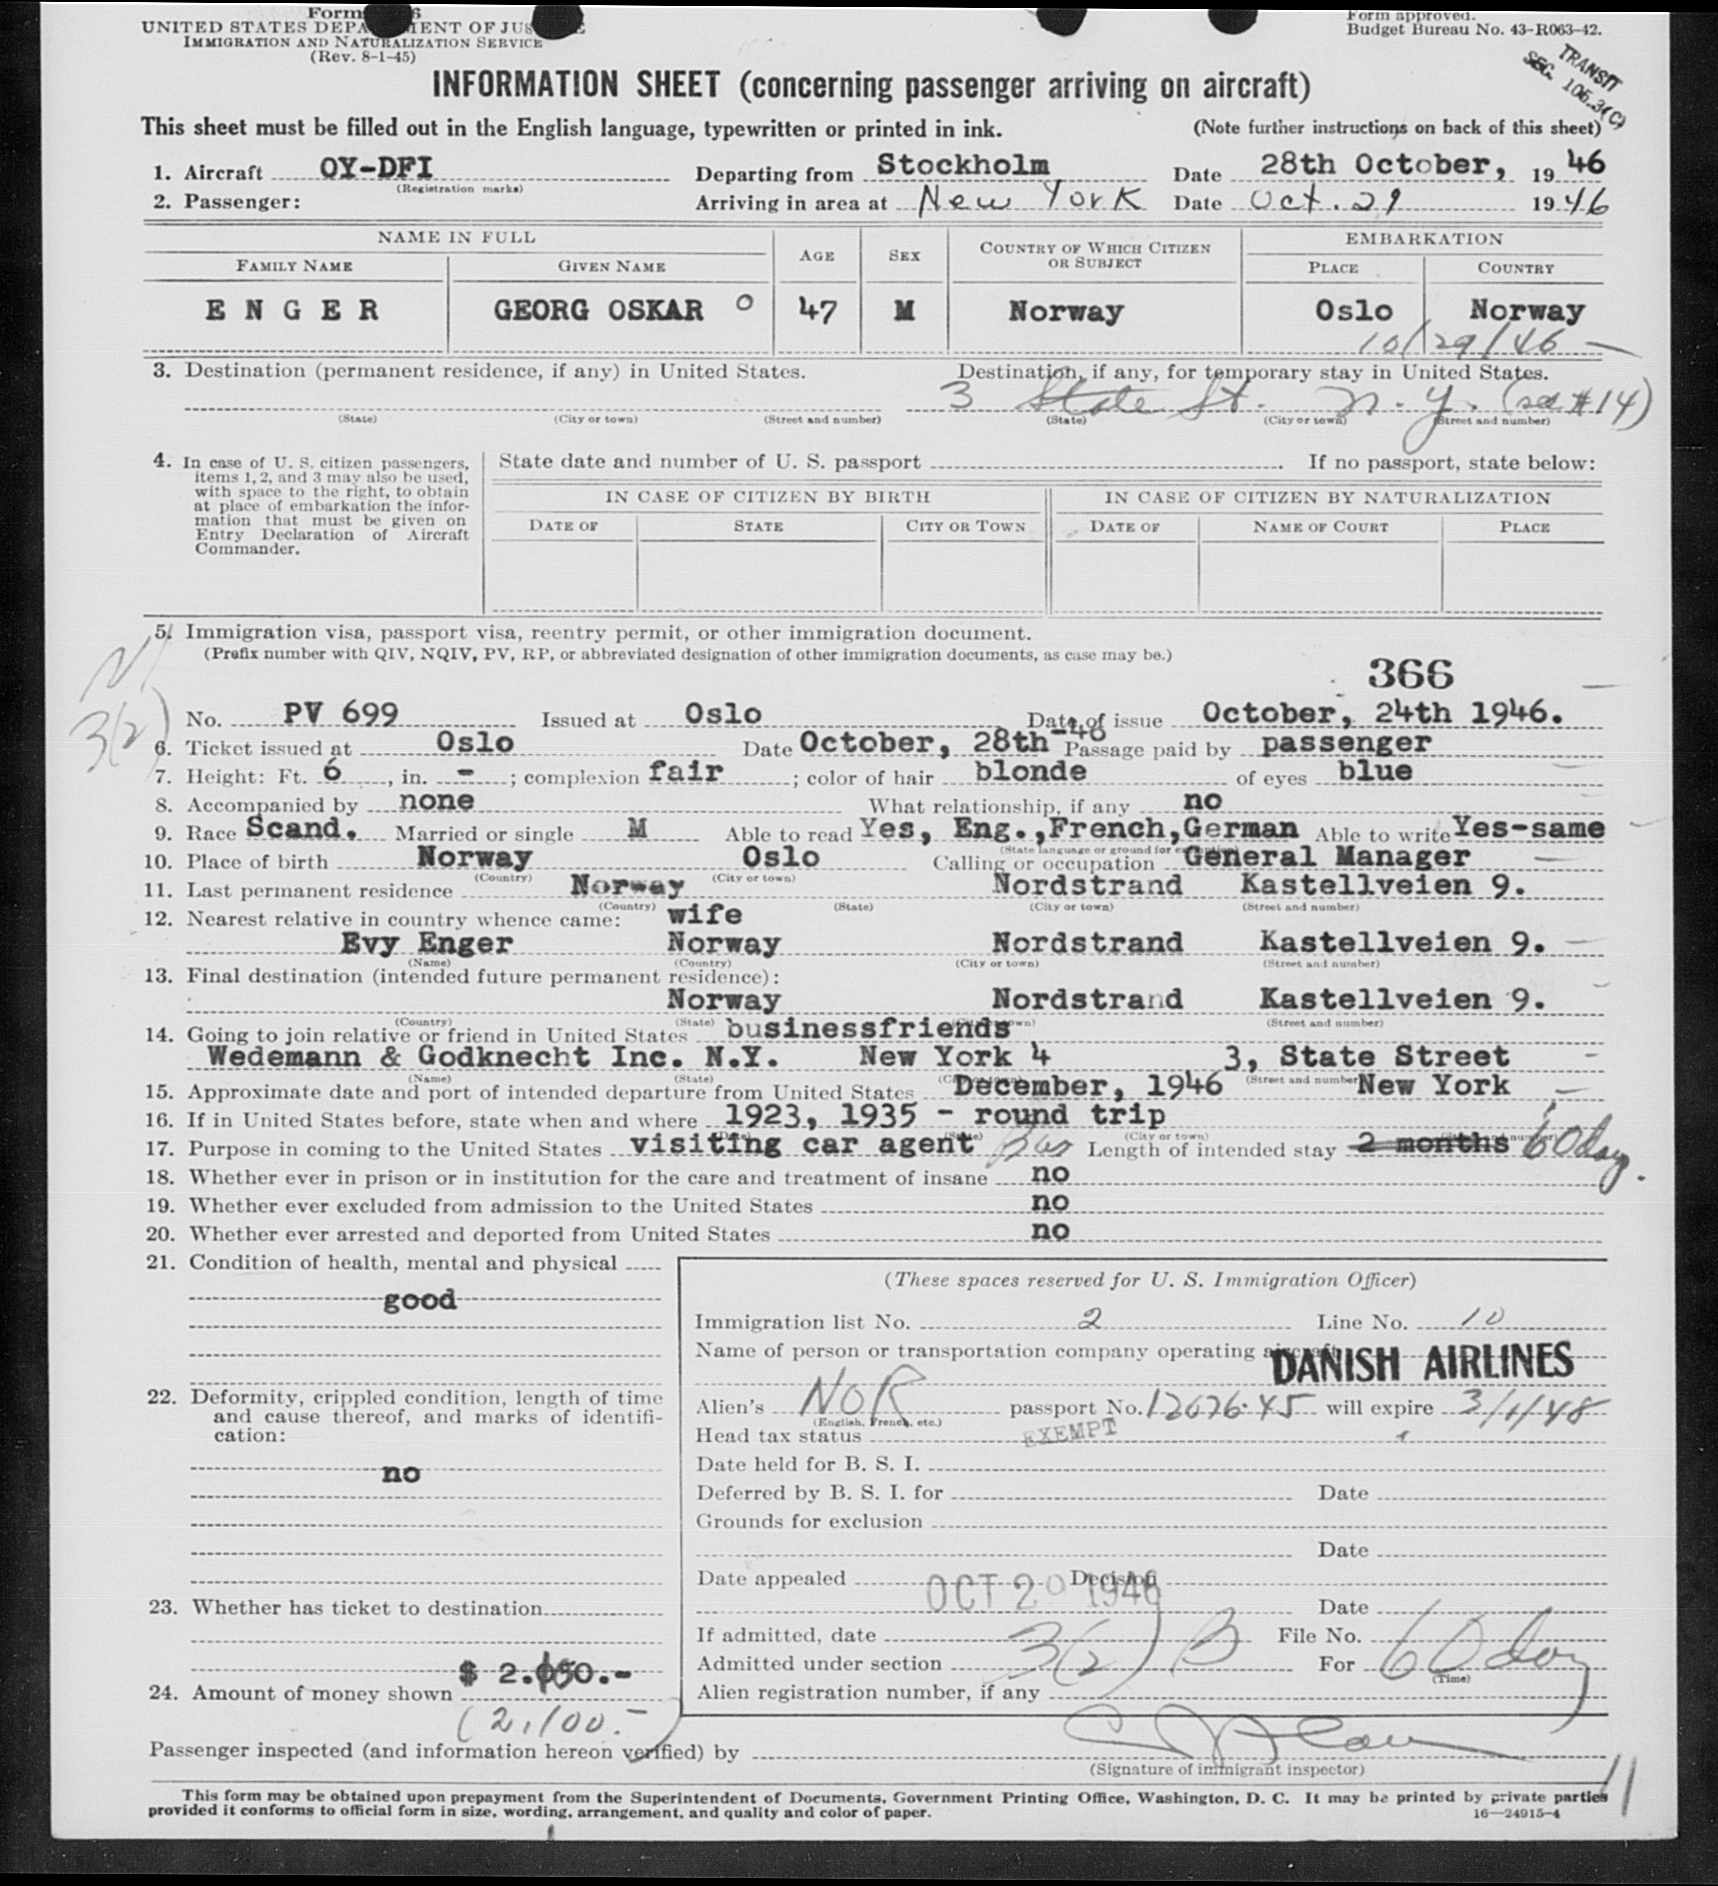 Form
UNITED STATES DEPARTMENT OF JUSTICE
IMMIGRATION AND NATURALIZATION SERVICE
(Rev. 8-1-45)
Form approved.
Budget Bureau No. 43-R063-42.
TRANSIT
SEC. 105.3(C)
INFORMATION SHEET (concerning passenger arriving on aircraft)
This sheet must be filled out in the English language, typewritten or printed in ink. (Note further instructions on back of this sheet)
1. Aircraft OY-DFI Departing from Stockholm Date 28th October, 1946
(Registration marks)
2. Passenger: Arriving in area at New York Date Oct. 29 1946
NAME IN FULL AGE SEX COUNTRY OF WHICH CITIZEN OR SUBJECT EMBARKATION
FAMILY NAME GIVEN NAME PLACE COUNTRY
E N G E R GEORG OSKAR O 47 M Norway Oslo Norway
10/29/46 —
3. Destination (permanent residence, if any) in United States. Destination, if any, for temporary stay in United States.
3 State St. N.Y. (see #14)
(State) (City or town) (Street and number) (State) (City or town) (Street and number)
4. In case of U. S. citizen passengers, items 1, 2, and 3 may also be used, with space to the right, to obtain at place of embarkation the information that must be given on Entry Declaration of Aircraft Commander.
State date and number of U. S. passport . If no passport, state below:
IN CASE OF CITIZEN BY BIRTH IN CASE OF CITIZEN BY NATURALIZATION
DATE OF STATE CITY OR TOWN DATE OF NAME OF COURT PLACE
5. Immigration visa, passport visa, reentry permit, or other immigration document.
(Prefix number with QIV, NQIV, PV, RP, or abbreviated designation of other immigration documents, as case may be.)
366
3(2)
No. PV 699 Issued at Oslo Date of issue October, 24th 1946.
6. Ticket issued at Oslo Date October, 28th-46 Passage paid by passenger
7. Height: Ft. 6, in. - ; complexion fair ; color of hair blonde of eyes blue
8. Accompanied by none What relationship, if any no
9. Race Scand. Married or single M Able to read Yes, Eng.,French,German Able to write Yes-same
10. Place of birth Norway Oslo Calling or occupation General Manager
(Country) (City or town)
11. Last permanent residence Norway Nordstrand Kastellveien 9.
(Country) (State) (City or town) (Street and number)
12. Nearest relative in country whence came: wife
Evy Enger Norway Nordstrand Kastellveien 9.
(Name) (Country) (City or town) (Street and number)
13. Final destination (intended future permanent residence):
Norway Nordstrand Kastellveien 9.
(Country) (State) (City or town) (Street and number)
14. Going to join relative or friend in United States businessfriends
Wedemann & Godknecht Inc. N.Y. New York 4 3, State Street
(Name) (State) (City or town) (Street and number)
15. Approximate date and port of intended departure from United States December, 1946 New York
16. If in United States before, state when and where 1923, 1935 - round trip
(Date) (State) (City or town) (Street and number)
17. Purpose in coming to the United States visiting car agent Bus Length of intended stay 2 months 60 day.
18. Whether ever in prison or in institution for the care and treatment of insane no
19. Whether ever excluded from admission to the United States no
20. Whether ever arrested and deported from United States no
21. Condition of health, mental and physical
good
22. Deformity, crippled condition, length of time and cause thereof, and marks of identification:
no
23. Whether has ticket to destination
24. Amount of money shown $ 2.050.-
(2,100.-)
(These spaces reserved for U. S. Immigration Officer)
Immigration list No. 2 Line No. 10
Name of person or transportation company operating aircraft
DANISH AIRLINES
Alien's NOR passport No. 12676-45 will expire 3/1/48
(English, French, etc.)
Head tax status EXEMPT
Date held for B. S. I.
Deferred by B. S. I. for Date
Grounds for exclusion
Date
Date appealed Decision
OCT 29 1946
Date
If admitted, date File No.
Admitted under section 3(2) B For 60 day
(Time)
Alien registration number, if any
Passenger inspected (and information hereon verified) by
(Signature of immigrant inspector)
11
This form may be obtained upon prepayment from the Superintendent of Documents, Government Printing Office, Washington, D. C. It may be printed by private parties
provided it conforms to official form in size, wording, arrangement, and quality and color of paper. 16—24915-4